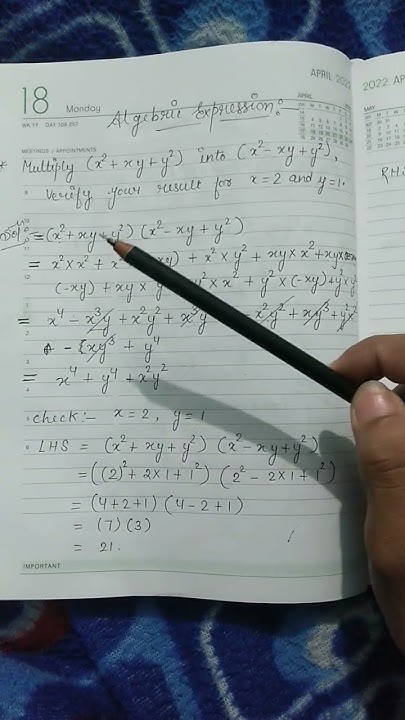 APRIL 2022
2022 AP
18 Monday
WK 17 DAY 108-257
APRIL
MAY
Algebric Expression:
MEETINGS / APPOINTMENTS
* Multiply (x² + xy + y²) into (x² - xy + y²),
Verify your result for x = 2 and y = 1.
RH
Sol: = (x² + xy + y²) (x² - xy + y²)
= x² × x² + x² xy) + x² × y² + xy × x² + xy ×
(-xy) + xy × y × x² + y² × (-xy) + y² × y²
= x⁴ - x³y + x²y² + x³y - x²y² + xy³ + y²x²
- xy³ + y⁴
= x⁴ + y⁴ + x²y²
check:- x = 2, y = 1
LHS = (x² + xy + y²) (x² - xy + y²)
= ((2)² + 2×1 + 1²) (2² - 2×1 + 1²)
= (4+2+1) (4-2+1)
= (7) (3)
= 21.
IMPORTANT